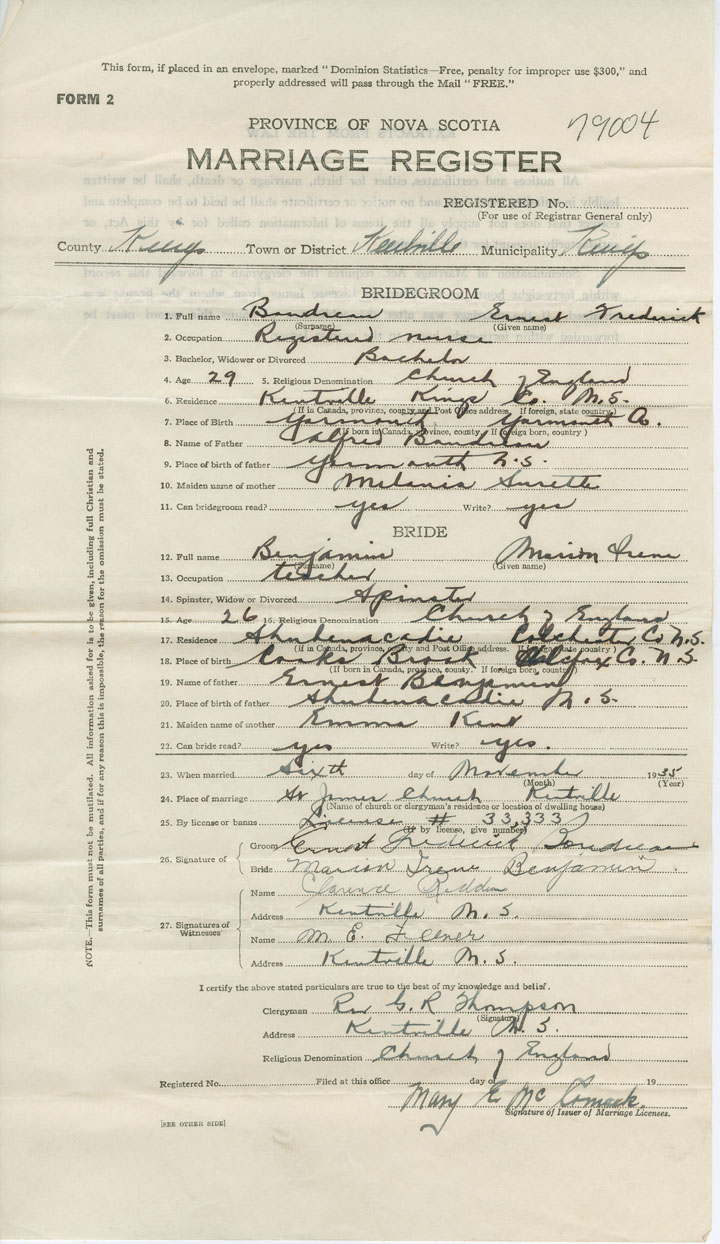 This form, if placed in an envelope, marked "Dominion Statistics—Free, penalty for improper use $300," and
properly addressed will pass through the Mail "FREE."
FORM 2
PROVINCE OF NOVA SCOTIA 79004
MARRIAGE REGISTER
REGISTERED No.
(For use of Registrar General only)
County Kings Town or District Kentville Municipality Kings
BRIDEGROOM
1. Full name Boudreau Ernest Frederick
(Surname) (Given name)
2. Occupation Registered nurse
3. Bachelor, Widower or Divorced Bachelor
4. Age 29 5. Religious Denomination Church of England
6. Residence Kentville Kings Co. N.S.
(If in Canada, province, county and Post Office address. If foreign, state country)
7. Place of Birth Yarmouth Yarmouth Co.
(If born in Canada, province, county. If foreign born, country)
8. Name of Father Alfred Boudreau
9. Place of birth of father Yarmouth N.S.
10. Maiden name of mother Melanie Surette
11. Can bridegroom read? yes Write? yes
BRIDE
12. Full name Benjamin Marion Irene
(Surname) (Given name)
13. Occupation teacher
14. Spinster, Widow or Divorced Spinster
15. Age 26 16. Religious Denomination Church of England
17. Residence Shubenacadie Colchester Co N.S.
(If in Canada, province, county and Post Office address. If foreign state country)
18. Place of birth Cooks Brook Halifax Co. N.S.
(If born in Canada, province, county. If foreign born, country)
19. Name of father Ernest Benjamin
20. Place of birth of father Shubenacadie N.S.
21. Maiden name of mother Emma Kent
22. Can bride read? yes Write? yes.
23. When married Sixth day of November 1935
(Month) (Year)
24. Place of marriage St James Church Kentville
(Name of church or clergyman's residence or location of dwelling house)
25. By license or banns License # 33,333
(If by license, give number)
26. Signature of
Groom Ernest Frederick Boudreau
Bride Marion Irene Benjamin.
27. Signatures of Witnesses
Name Clarence Redden
Address Kentville N.S.
Name M. E.
Address Kentville N.S.
I certify the above stated particulars are true to the best of my knowledge and belief.
Clergyman Rev G. R Thompson
(Signature)
Address Kentville N.S.
Religious Denomination Church of England
Registered No. Filed at this office day of 19
Mary E McComack.
Signature of Issuer of Marriage Licenses.
[SEE OTHER SIDE]
NOTE.—This form must not be mutilated. All information asked for is to be given, including full Christian and
surnames of all parties, and if for any reason this is impossible, the reason for the omission must be stated.